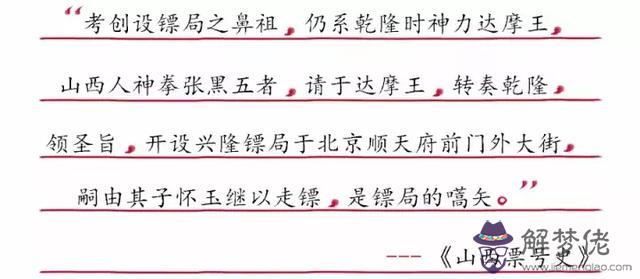 “考创设镖局之鼻祖，仍系乾隆时神力达摩王，
山西人神拳张黑五者，请于达摩王，转奏乾隆，
领圣旨，开设兴隆镖局于北京顺天府前门外大街，
嗣由其子怀玉继以走镖，是镖局的嚆矢。”
---《山西票号史》
解梦佬
www.jiemenglao.com